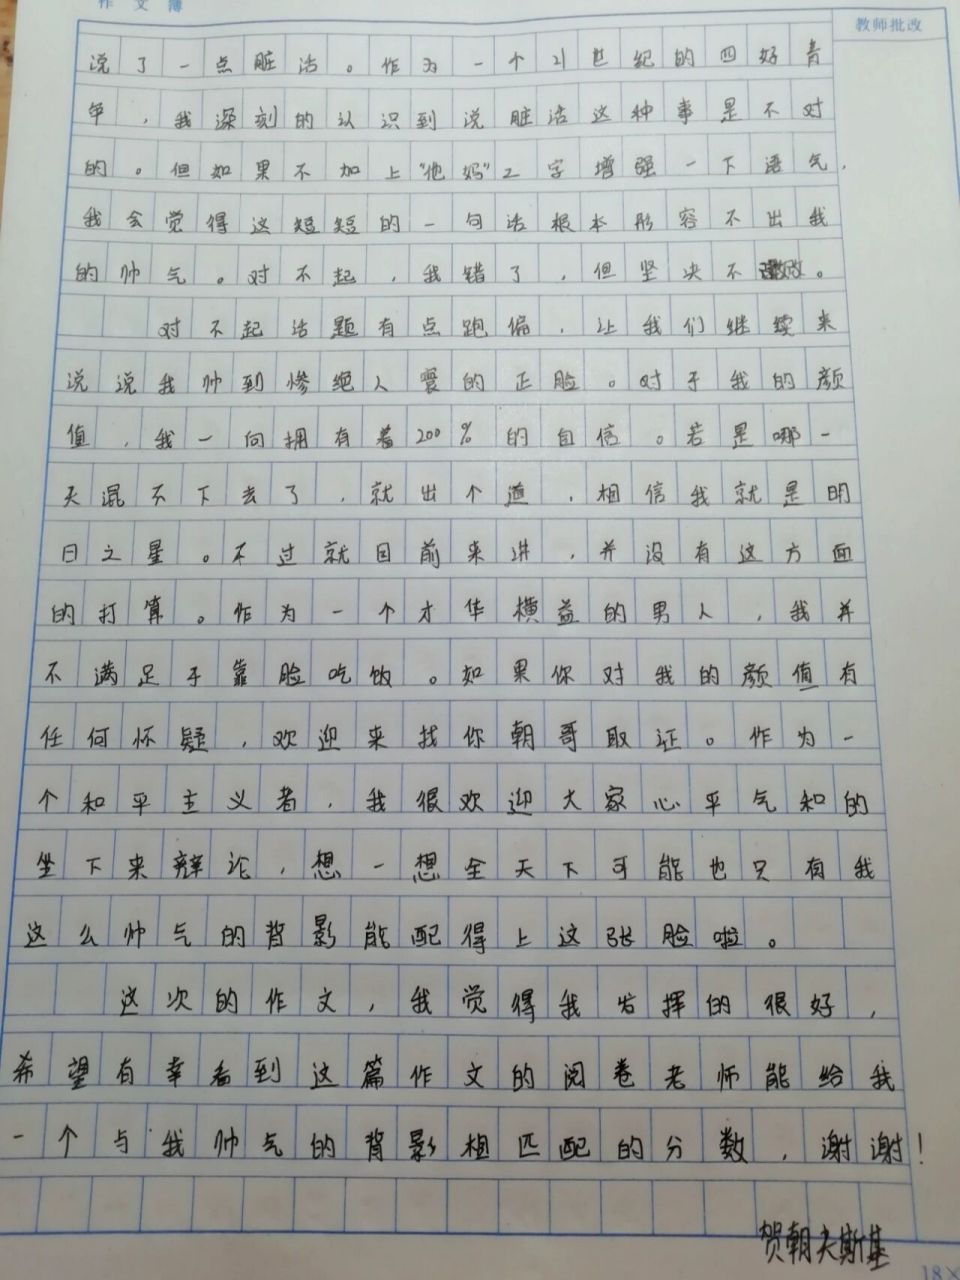 作文簿
教师批改
说了一点脏话。作为一个21世纪的四好青
年，我深刻的认识到说脏话这种事是不对
的。但如果不加上“他妈”2字增强一下语气，
我会觉得这短短的一句话根本形容不出我
的帅气。对不起，我错了，但坚决不改。
对不起话题有点跑偏，让我们继续来
说说我帅到惨绝人寰的正脸。对于我的颜
值，我一向拥有着200%的自信。若是哪一
天混不下去了，就出个道，相信我就是明
日之星。不过就目前来讲，并没有这方面
的打算。作为一个才华横益的男人，我并
不满足于靠脸吃饭。如果你对我的颜值有
任何怀疑，欢迎来找你朝哥取证。作为一
个和平主义者，我很欢迎大家心平气和的
坐下来辩论，想一想全天下可能也只有我
这么帅气的背影能配得上这张脸啦。
这次的作文，我觉得我发挥的很好，
希望有幸看到这篇作文的阅卷老师能给我
一个与我帅气的背影相匹配的分数，谢谢！
贺朝夫斯基
18×